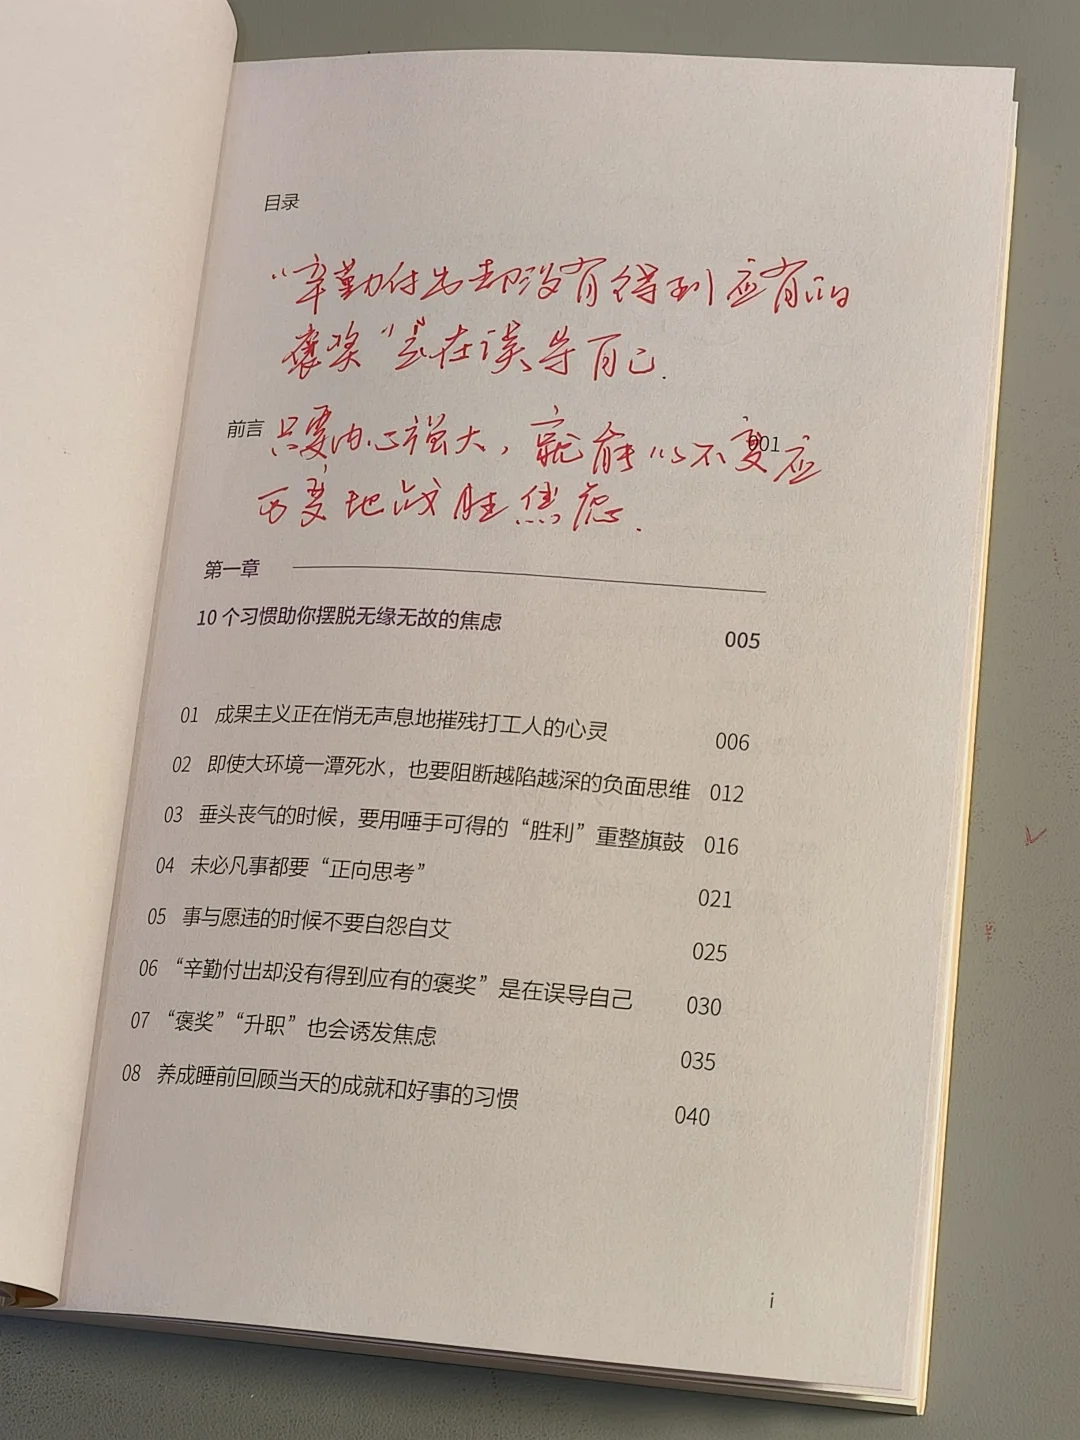 目录
“辛勤付出却没有得到应有的
褒奖”会在误导自己.
前言 001
只要内心强大，就能以不变应
万变地战胜焦虑.
第一章
10 个习惯助你摆脱无缘无故的焦虑 005
01 成果主义正在悄无声息地摧残打工人的心灵 006
02 即使大环境一潭死水，也要阻断越陷越深的负面思维 012
03 垂头丧气的时候，要用唾手可得的“胜利”重整旗鼓 016
04 未必凡事都要“正向思考” 021
05 事与愿违的时候不要自怨自艾 025
06 “辛勤付出却没有得到应有的褒奖”是在误导自己 030
07 “褒奖”“升职”也会诱发焦虑 035
08 养成睡前回顾当天的成就和好事的习惯 040
i